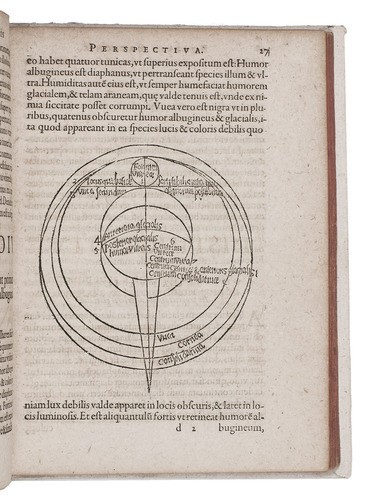 PERSPECTIVA. 27
eo habet quatuor tunicas, vt superius expositum est: Humor
albugineus est diaphanus, vt pertranseant species illum & vl-
tra. Humiditas autē eius est, vt semper humefaciat humorem
glacialem, & telam araneam, quę valde tenuis est, vnde ex ni-
mia siccitate posset corrumpi. Vuea vero est nigra vt in plu-
ribus, quatenus obscuretur humor albugineus & glacialis, i-
ta quod appareant in ea species lucis & coloris debilis quo
Foramen
vueæ
anterior glacialis
posterior glacialis
humor vitreus
Centrum
Vuea
Cornea
Consolidatiua
niam lux debilis valde apparet in locis obscuris, & latet in lo-
cis luminosis. Et est aliquantulū fortis vt retineat humorē al-
d 2 bugineum,